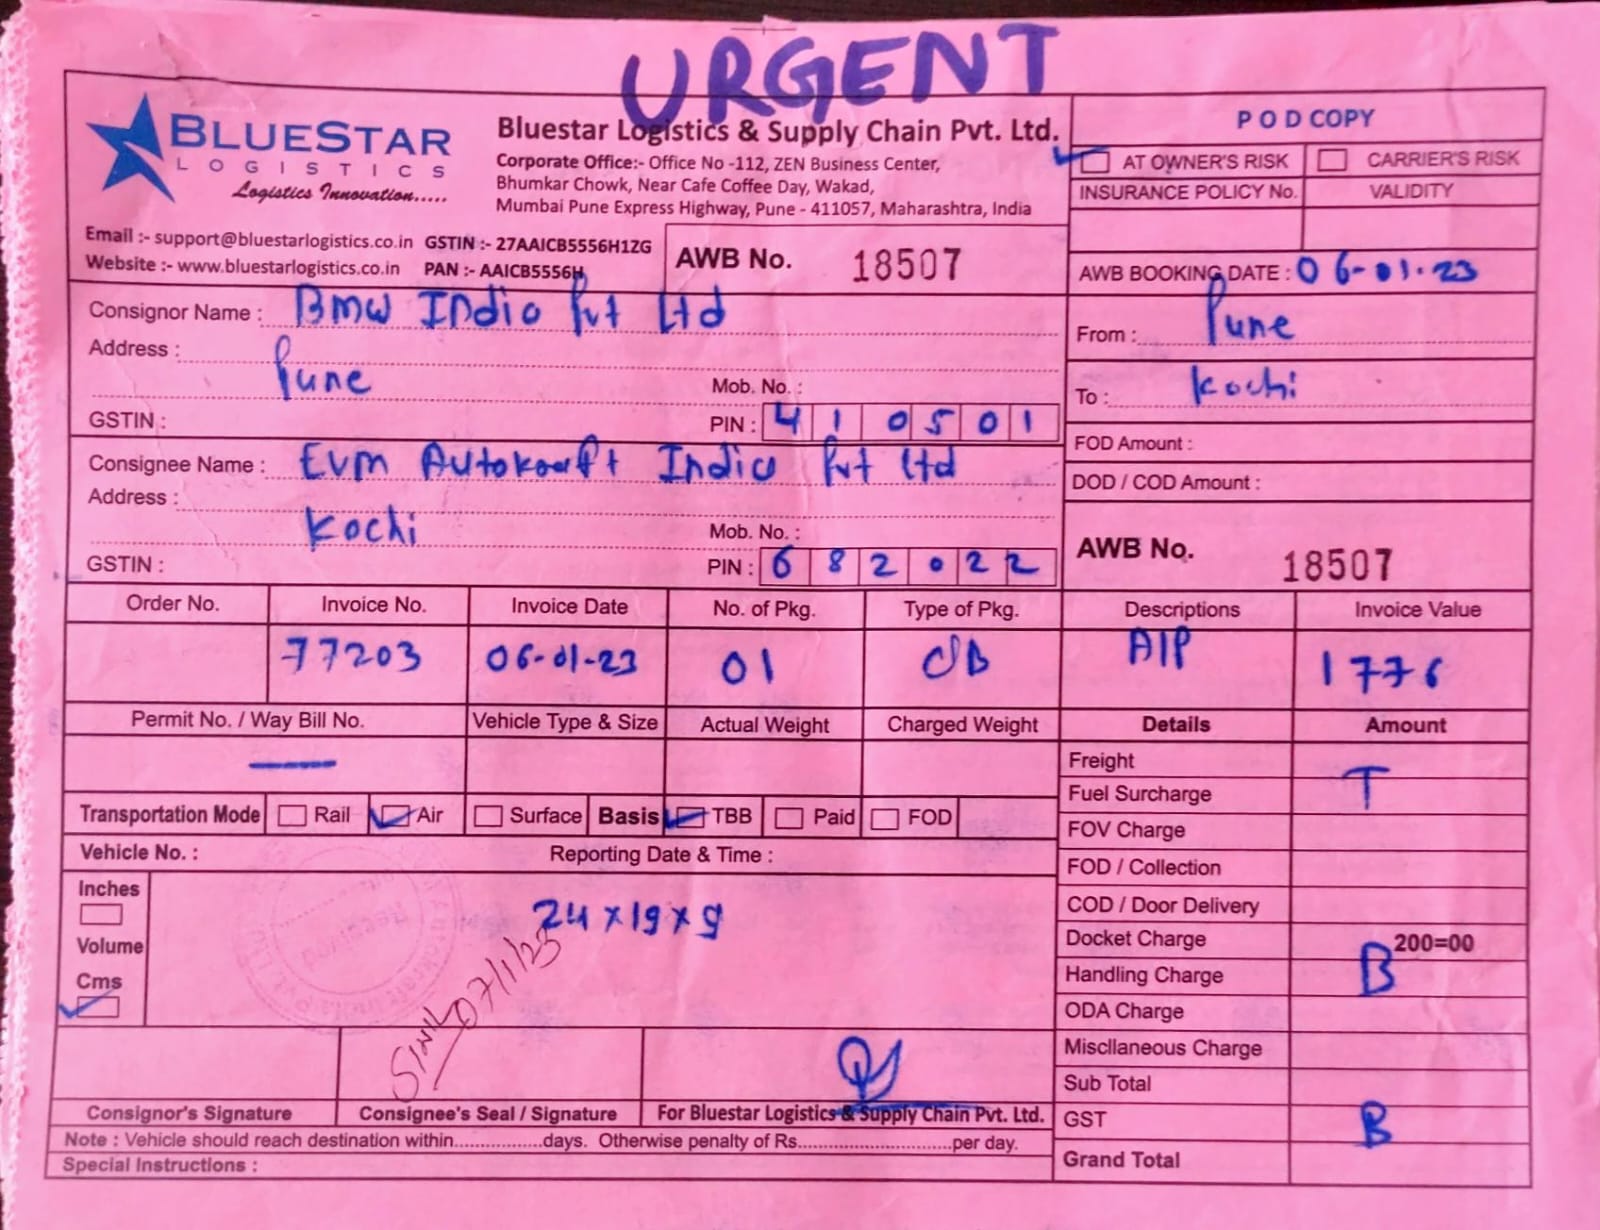 URGENT
BLUESTAR
LOGISTICS
Logistics Innovation.....
Bluestar Logistics & Supply Chain Pvt. Ltd.
Corporate Office:- Office No -112, ZEN Business Center,
Bhumkar Chowk, Near Cafe Coffee Day, Wakad,
Mumbai Pune Express Highway, Pune - 411057, Maharashtra, India
POD COPY
AT OWNER'S RISK CARRIER'S RISK
INSURANCE POLICY No. VALIDITY
Email :- support@bluestarlogistics.co.in GSTIN :- 27AAICB5556H1ZG
Website :- www.bluestarlogistics.co.in PAN :- AAICB5556H
AWB No. 18507
AWB BOOKING DATE : 06-01-23
Consignor Name : BMW India Pvt Ltd
Address :
Pune
Mob. No. :
GSTIN :
PIN : 410501
From : Pune
To : Kochi
Consignee Name : EVM Autokraft India Pvt Ltd
Address :
Kochi
Mob. No. :
GSTIN :
PIN : 682022
FOD Amount :
DOD / COD Amount :
AWB No. 18507
Order No. Invoice No. Invoice Date No. of Pkg. Type of Pkg. Descriptions Invoice Value
77203 06-01-23 01 C/B A/P 1776
Permit No. / Way Bill No. Vehicle Type & Size Actual Weight Charged Weight Details Amount
Freight
Fuel Surcharge T
Transportation Mode Rail Air Surface Basis TBB Paid FOD
FOV Charge
Vehicle No. : Reporting Date & Time :
FOD / Collection
Inches
COD / Door Delivery
24x19x9
Volume
Docket Charge 200=00
Cms
Handling Charge B
07/1/23
ODA Charge
Miscllaneous Charge
Sub Total
Consignor's Signature Consignee's Seal / Signature For Bluestar Logistics & Supply Chain Pvt. Ltd.
GST B
Note : Vehicle should reach destination within.................days. Otherwise penalty of Rs.............................per day.
Grand Total
Special Instructions :